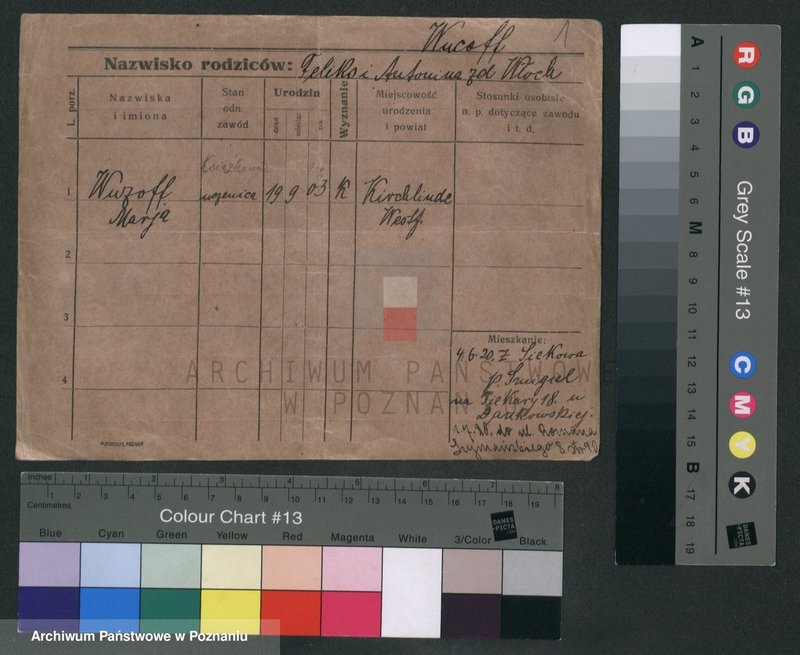 1
Nazwisko rodziców: Feliks i Antonina zd Włoch
L. porz.
Nazwiska
i imiona
Stan
odn.
zawód
Urodzin
dzień
miesiąc
rok
Wyznanie
Miejscowość
urodzenia
i powiat
Stosunki osobiste
n. p. dotyczące zawodu
i t. d.
1
Marja
uczenica
19 9 03
K
Kirchlinde
Westf.
2
3
4
Mieszkanie:
4.6.20. z Siekowa
p. Śmigiel
na Piekary 18. u
do ul. Romana
Szymańskiego 8
ARCHIWUM PAŃSTWOWE
W POZNAN
Inches 1 2 3 4 5 6 7 8
Centimetres 1 2 3 4 5 6 7 8 9 10 11 12 13 14 15 16 17 18 19
Colour Chart #13
DANES
-PICTA
.COM
Blue Cyan Green Yellow Red Magenta White 3/Color Black
Archiwum Państwowe w Poznaniu
A 1 2 3 4 5 6 M 8 9 10 11 12 13 14 15 B 17 18 19
R G B
Grey Scale #13
C M Y K
DANES
-PICTA
.COM